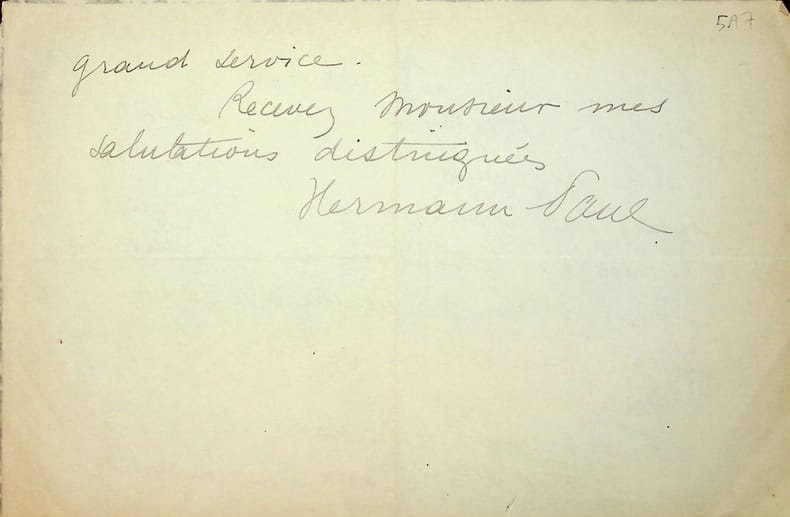 5A7
grand service.
Recevez Monsieur mes
salutations distinguées
Hermann Paul